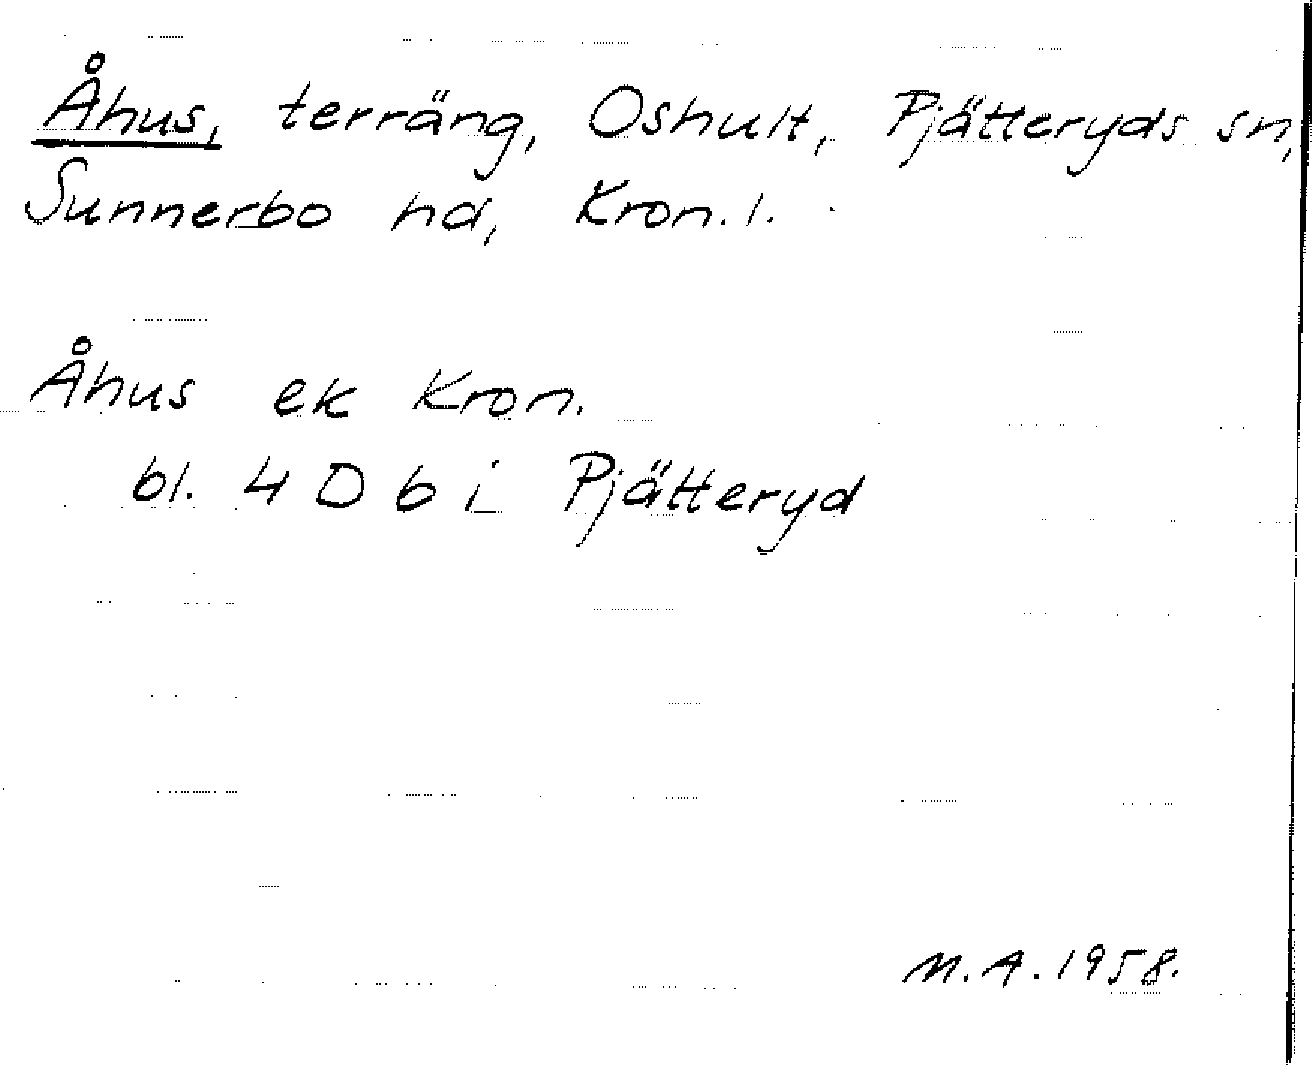 Åhus, terräng, Oshult, Pjätteryds sn,
Sunnerbo hd, Kron. l.
Åhus ek Kron.
bl. 4 D 6 i Pjätteryd
M.A. 1958.